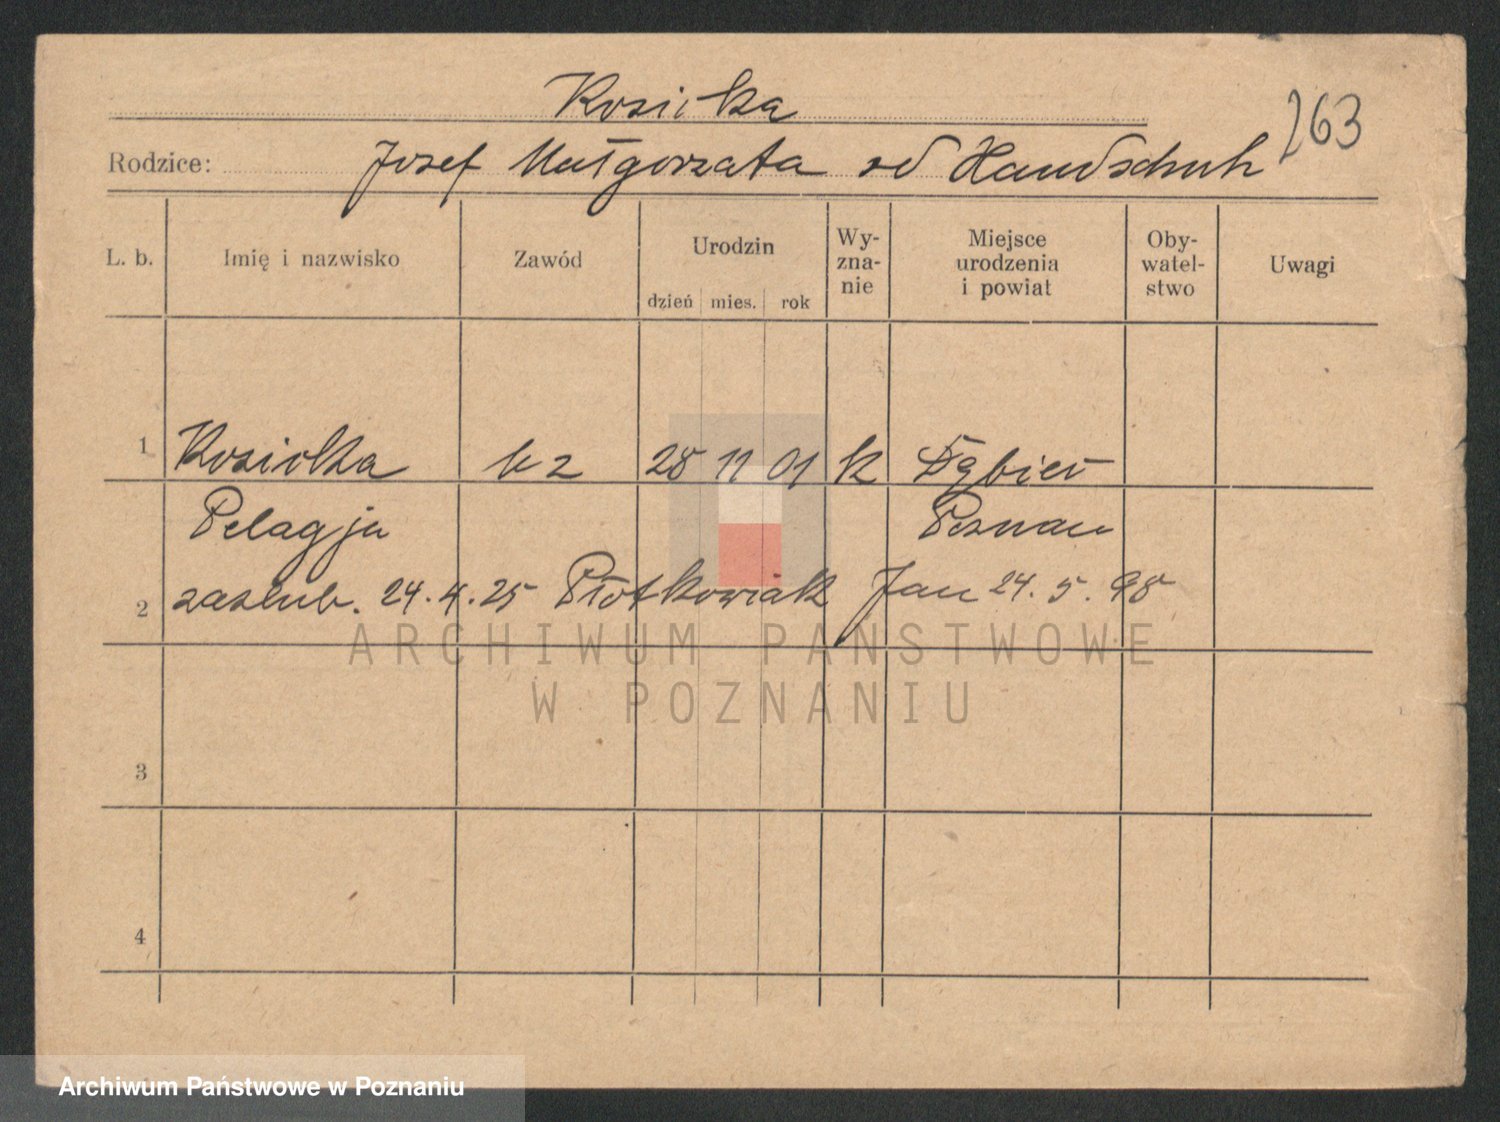 Kosicka
263
Rodzice: Josef Małgorzata od Handschuh
L. b. Imię i nazwisko Zawód Urodzin dzień mies. rok Wy-zna-nie Miejsce urodzenia i powiat Oby-watel-stwo Uwagi
1 Kosicka bz 28 11 01 k Dębiec
Pelagja Poznań
2 zaślub. 24.4.25 Płotkowiak Jan 24.5.98
3
4
ARCHIWUM PAŃSTWOWE
W POZNANIU
Archiwum Państwowe w Poznaniu